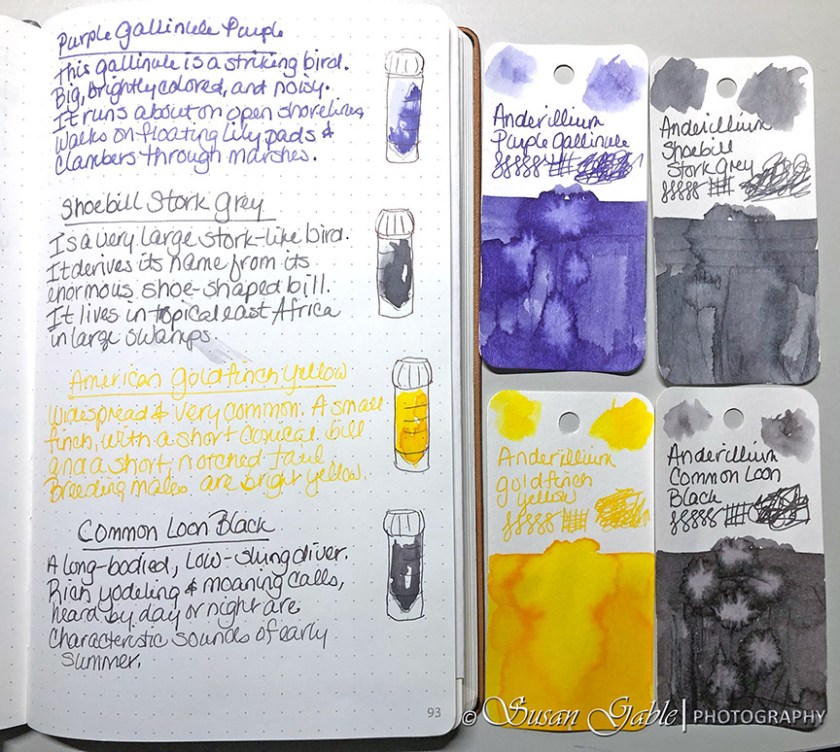 Purple Gallinule Purple
This gallinule is a striking bird.
Big, brightly colored, and noisy.
It runs about on open shorelines
walks on floating lily pads &
clambers through marshes.
Shoebill Stork Grey
Is a very large stork-like bird.
It derives its name from its
enormous shoe-shaped bill.
It lives in topical east Africa
in large swamps.
American Goldfinch Yellow
Widespread & very common. A small
finch, with a short conical bill
and a short, notched tail
Breeding males are bright yellow.
Common Loon Black
A long-bodied, low-slung diver.
Rich yodeling & moaning calls,
heard by day or night are
characteristic sounds of early
summer.
93
Anderillium
Purple Gallinule
Anderillium
Shoebill
Stork Grey
Anderillium
goldfinch
yellow
Anderillium
Common Loon
Black
© Susan Gable | PHOTOGRAPHY